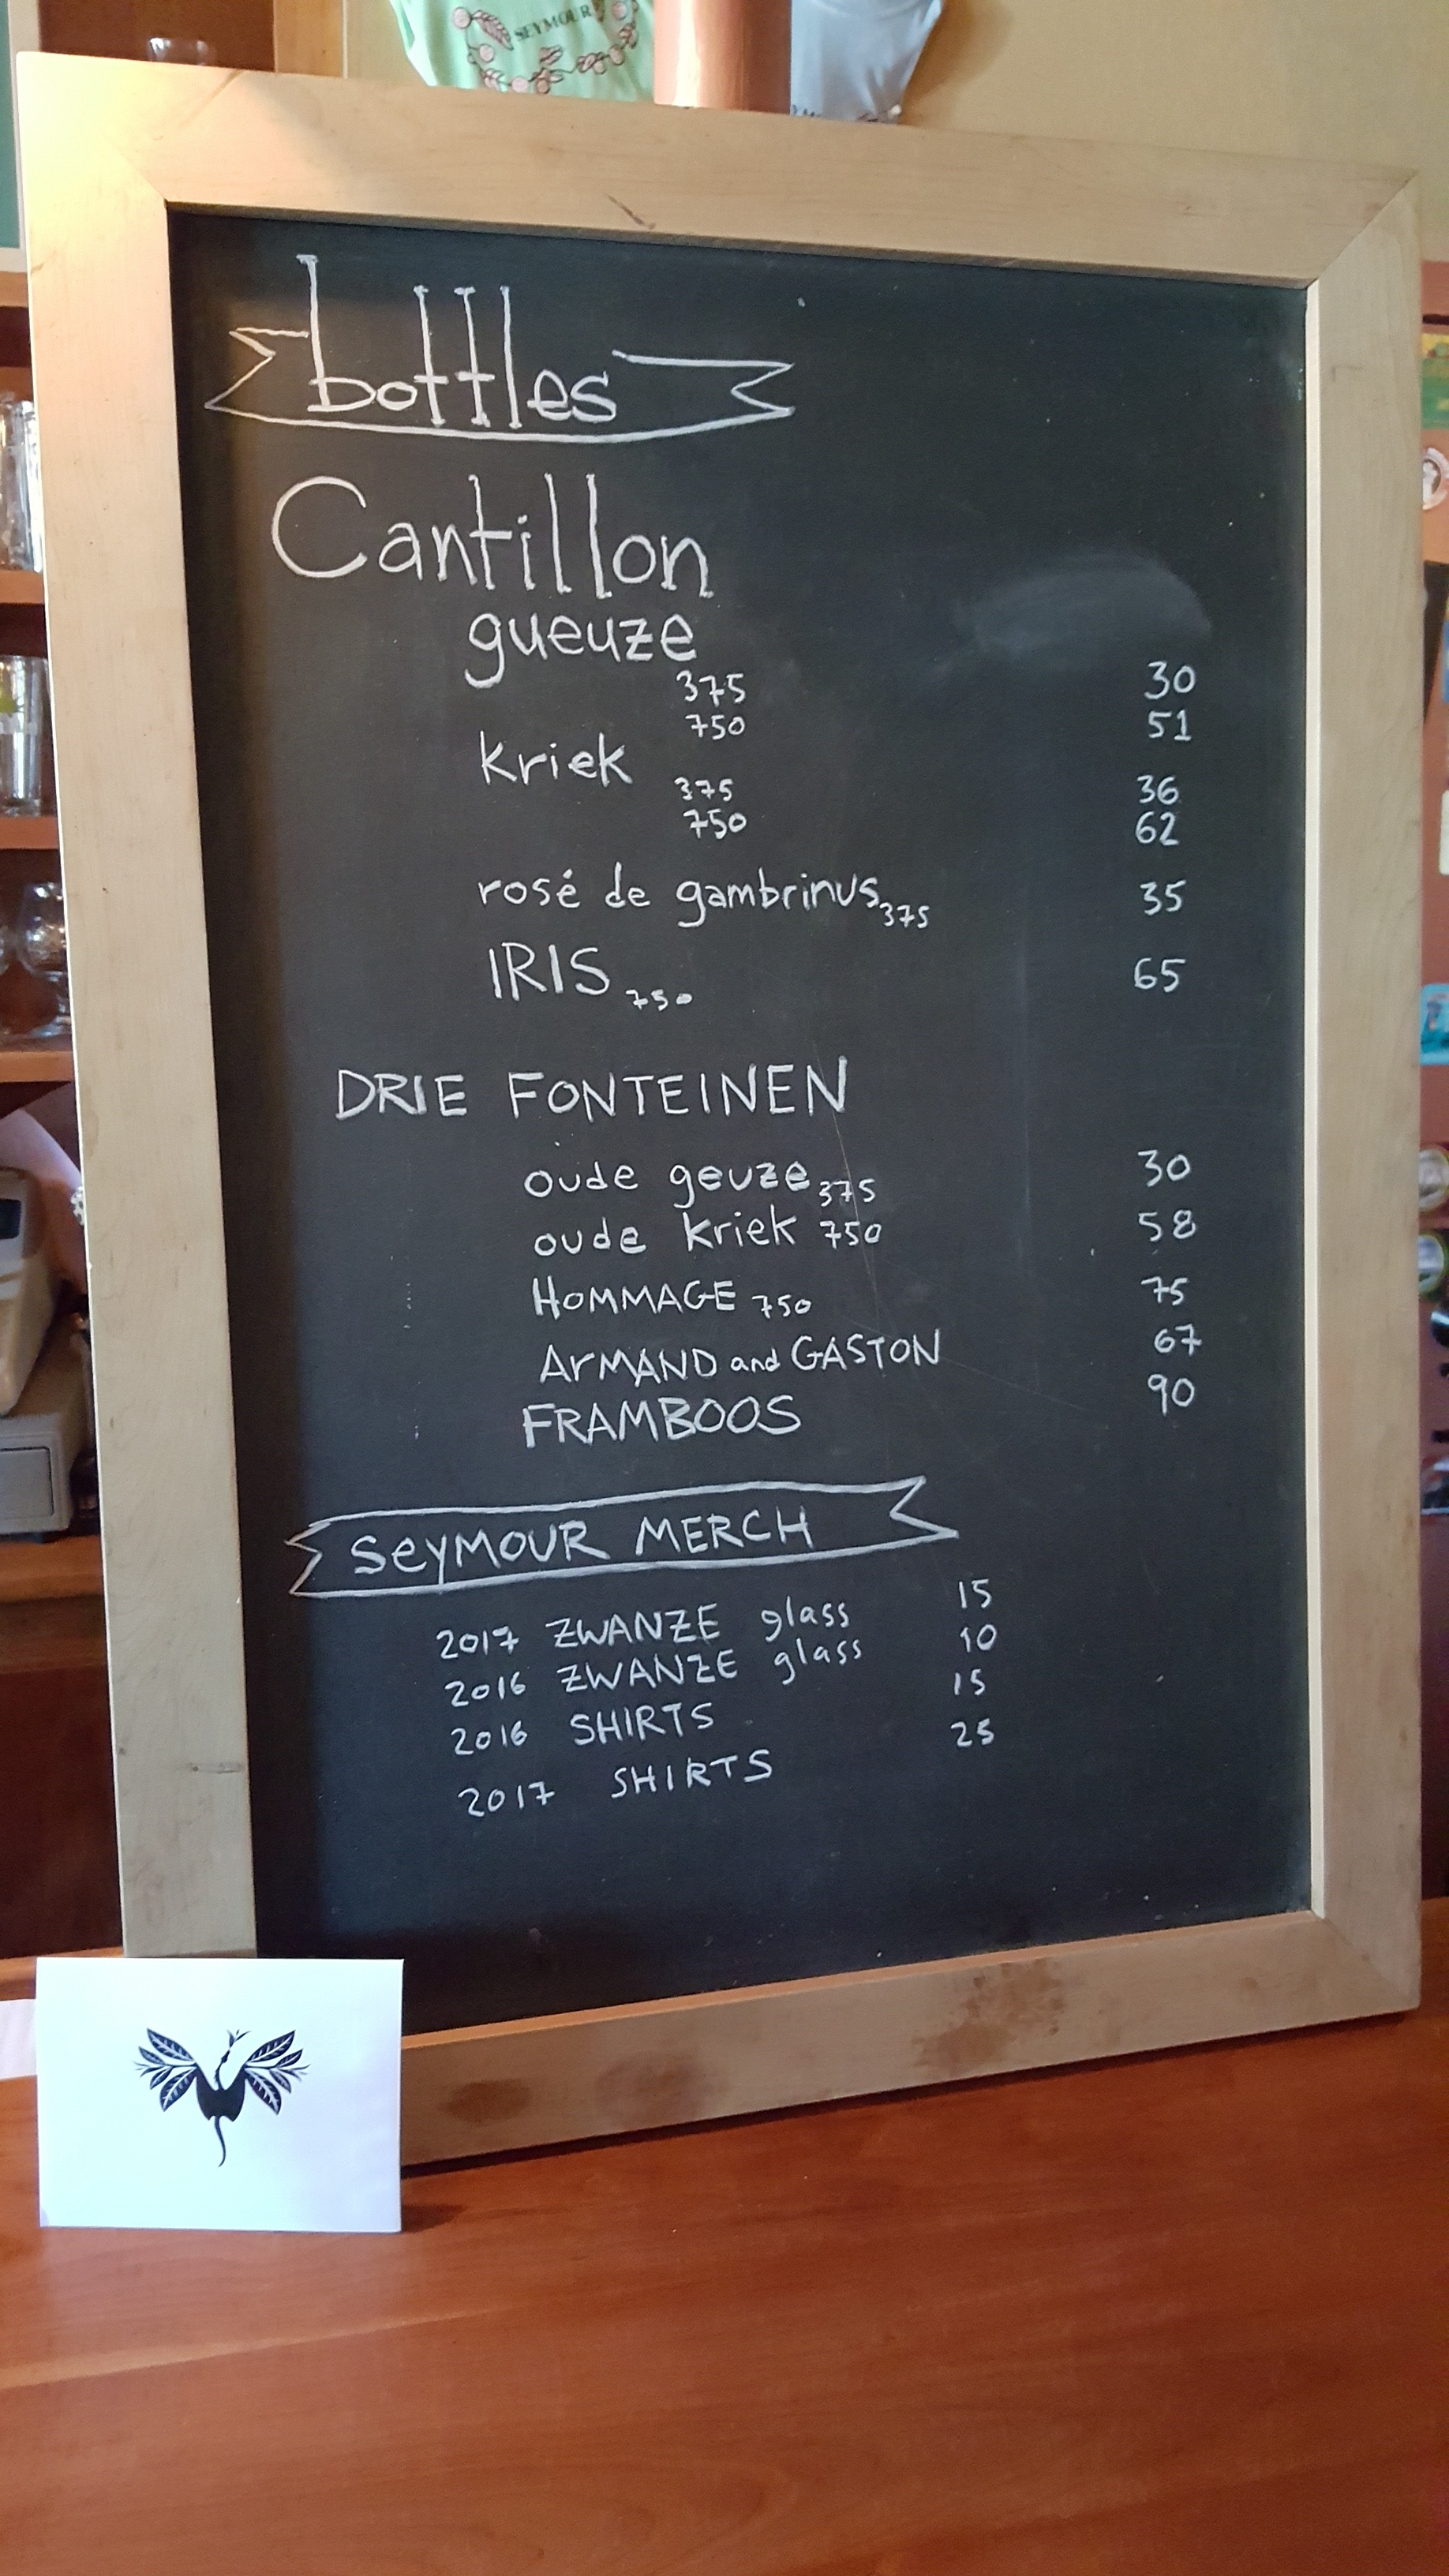 SEYMOUR
bottles
Cantillon
gueuze
375 30
750 51
kriek
375 36
750 62
rosé de gambrinus 375 35
IRIS 750 65
DRIE FONTEINEN
oude geuze 375 30
oude kriek 750 58
HOMMAGE 750 75
ArMAND and GASTON 67
FRAMBOOS 90
SeYMOUR MERCH
2017 ZWANZE glass 15
2016 ZWANZE glass 10
2016 SHIRTS 15
2017 SHIRTS 25